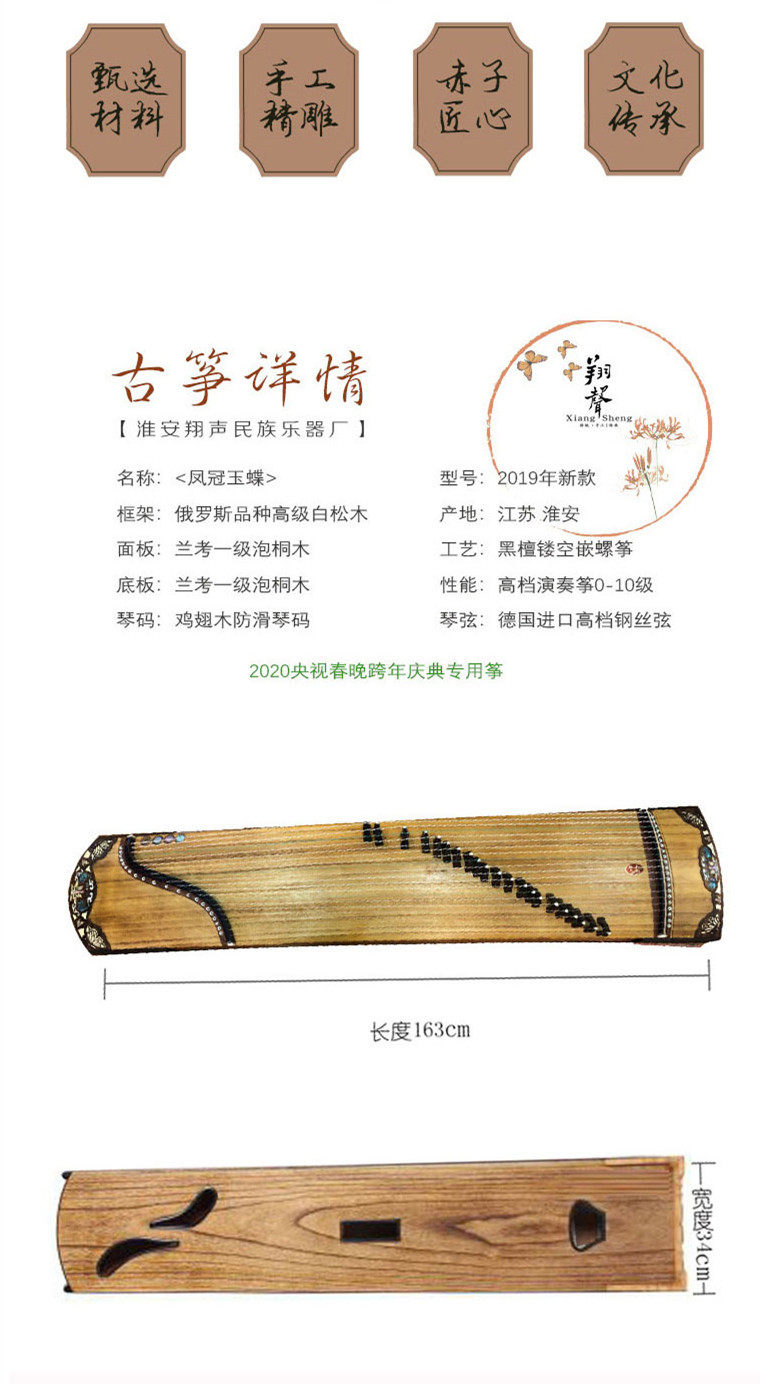 甄选
材料
手工
精雕
赤子
匠心
文化
传承
古筝详情
【淮安翔声民族乐器厂】
翔聲
Xiang Sheng
名称：<凤冠玉蝶>
型号：2019年新款
框架：俄罗斯品种高级白松木
产地：江苏 淮安
面板：兰考一级泡桐木
工艺：黑檀镂空嵌螺筝
底板：兰考一级泡桐木
性能：高档演奏筝0-10级
琴码：鸡翅木防滑琴码
琴弦：德国进口高档钢丝弦
2020央视春晚跨年庆典专用筝
长度163cm
宽度34cm